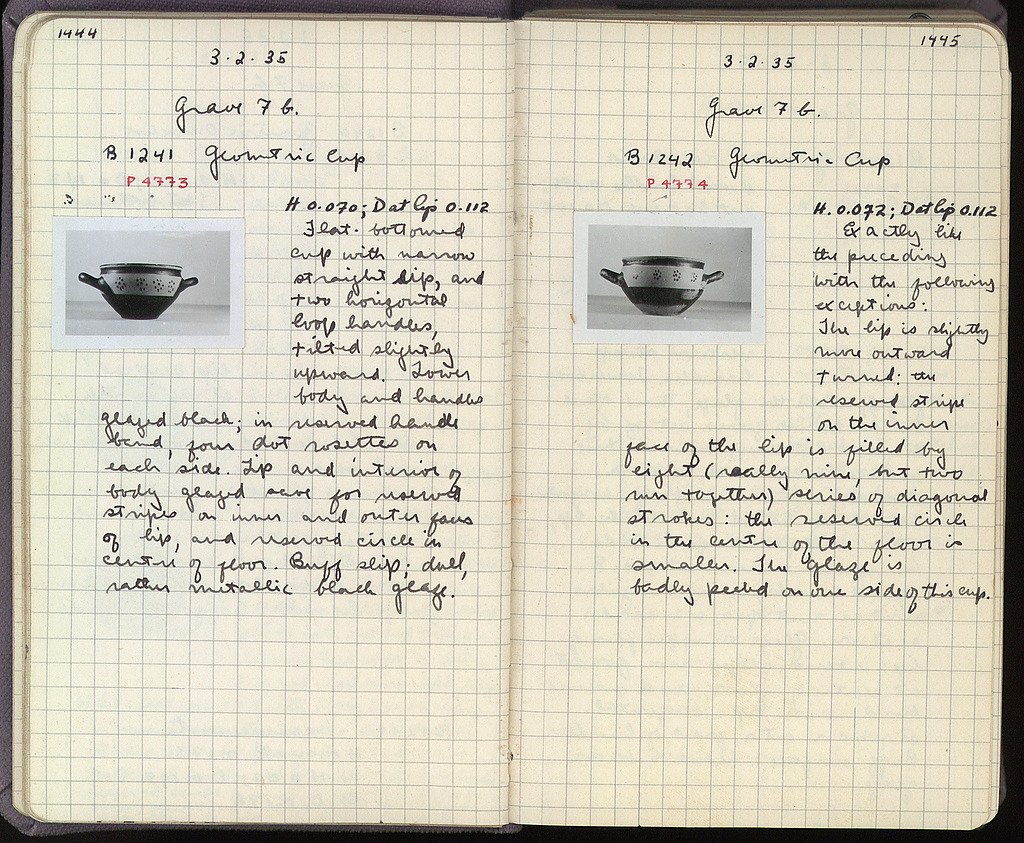 1444
3·2·35
Grave 7 b.
B 1241 Geometric Cup
P 4773
H 0.070; D at lip 0.112
Flat-bottomed
cup with narrow
straight lip, and
two horizontal
loop handles,
tilted slightly
upward. Lower
body and handles
glazed black; in reserved handle
band, four dot rosettes on
each side. Lip and interior of
body glazed save for reserved
stripes on inner and outer faces
of lip, and reserved circle in
centre of floor. Buff slip; dull,
rather metallic black glaze.
1445
3·2·35
Grave 7 b.
B 1242 Geometric Cup
P 4774
H. 0.072; D at lip 0.112
Exactly like
the preceding
with the following
exceptions:
The lip is slightly
more outward
turned: the
reserved stripe
on the inner
face of the lip is filled by
eight (really nine, but two
run together) series of diagonal
strokes: the reserved circle
in the centre of the floor is
smaller. The glaze is
badly peeled on one side of this cup.